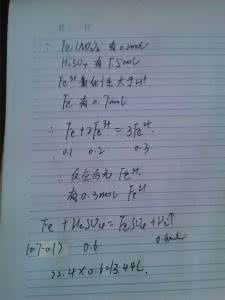 ∵ Fe(NO₃)₃ 有0.2mol
H₂SO₄ 有 1.5mol
Fe³⁺氧化性大于H⁺
Fe 有0.7mol
∴ Fe+2Fe³⁺=3Fe²⁺.
0.1 0.2 0.3
∴ 反应后无 Fe³⁺.
有0.3mol Fe²⁺
Fe + H₂SO₄=FeSO₄+H₂↑
(0.7-0.1) 0.6 0.6mol
22.4×0.6=13.44L.